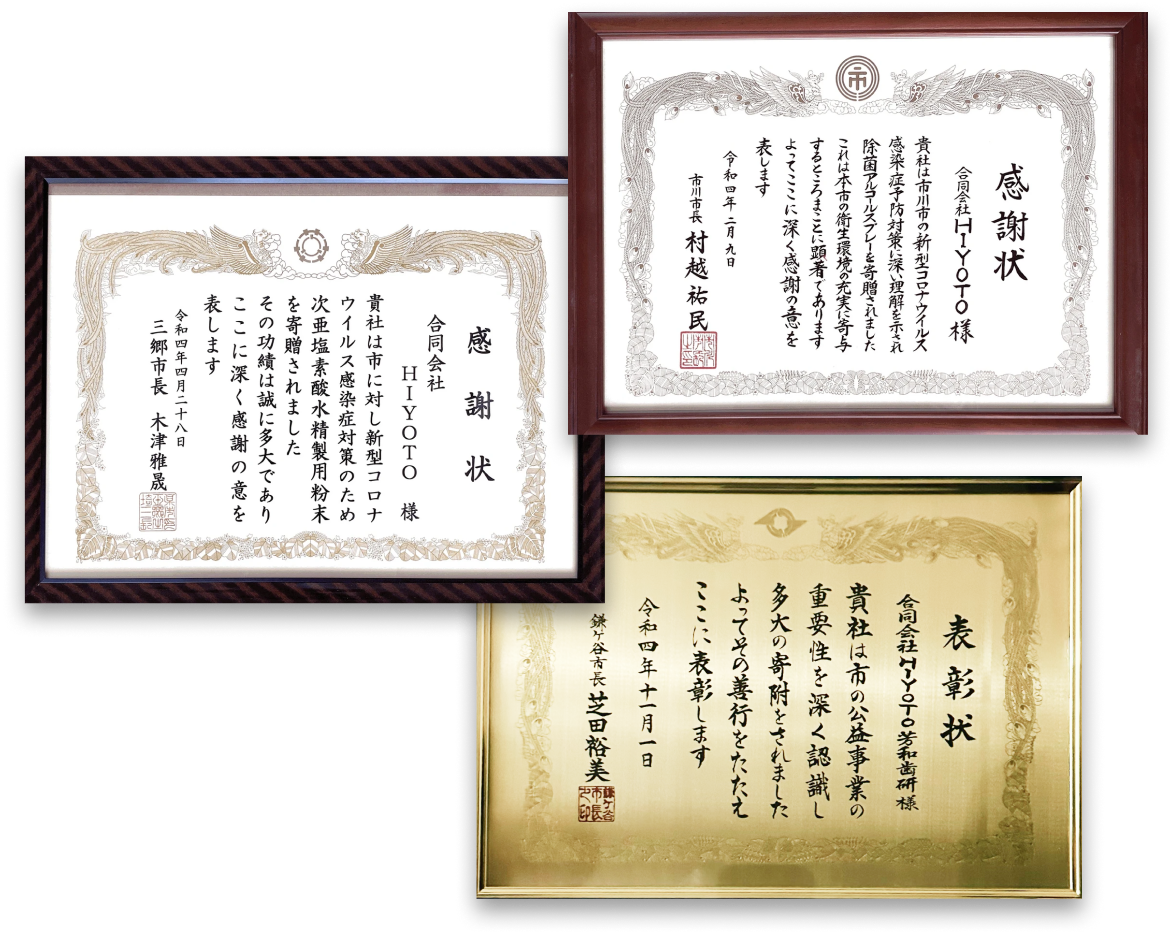 感謝状
合同会社HIYOTO様
貴社は市川市の新型コロナウイルス
感染症予防対策に深い理解を示され
除菌アルコールスプレーを寄贈されました
これは本市の衛生環境の充実に寄与
するところまことに顕著であります
よってここに深く感謝の意を
表します
令和四年二月九日
市川市長 村越祐民
感謝状
合同会社
HIYOTO 様
貴社は市に対し新型コロナ
ウイルス感染症対策のため
次亜塩素酸水精製用粉末
を寄贈されました
その功績は誠に多大であり
ここに深く感謝の意を
表します
令和四年四月二十八日
三郷市長 木津雅晟
表彰状
合同会社HIYOTO芳和歯研様
貴社は市の公益事業の
重要性を深く認識し
多大の寄附をされました
よってその善行をたたえ
ここに表彰します
令和四年十一月一日
鎌ケ谷市長 芝田裕美
鎌ケ谷
市長
之印